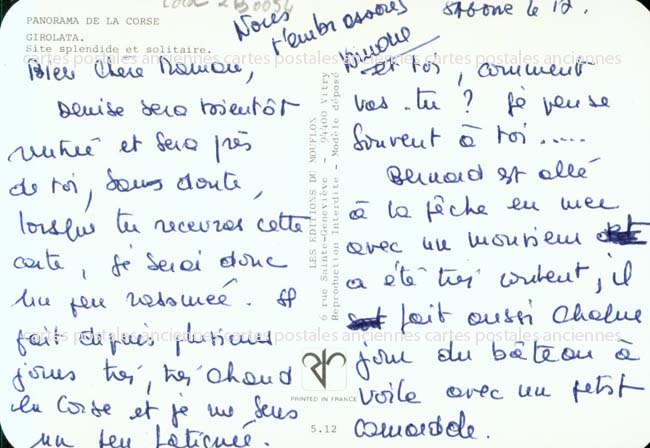 PANORAMA DE LA CORSE
GIROLATA.
Site splendide et solitaire.
Nous
t'embrassons
Simone
Sagone le 12.
Bien Chère Maman,
Denise sera bientôt
rentrée et sera près
de toi, sans doute,
lorsque tu recevras cette
carte, je serai donc
un peu rassurée. Il
fait depuis plusieurs
jours très, très chaud
en Corse et je me sens
un peu fatiguée.
LES EDITIONS DU MOUFLON
6 rue Sainte-Geneviève - 94400 Vitry
Reproduction Interdite - Modèle déposé
PRINTED IN FRANCE
5.12
et toi, comment
vas-tu ? Je pense
souvent à toi.....
Bernard est allé
à la pêche en mer
avec un monsieur
a été très content, il
fait aussi chaque
jour du bâteau à
voile avec un petit
camarade.
cartes postales anciennes cartes postales anciennes cartes postales anciennes
cartes postales anciennes cartes postales anciennes cartes postales anciennes